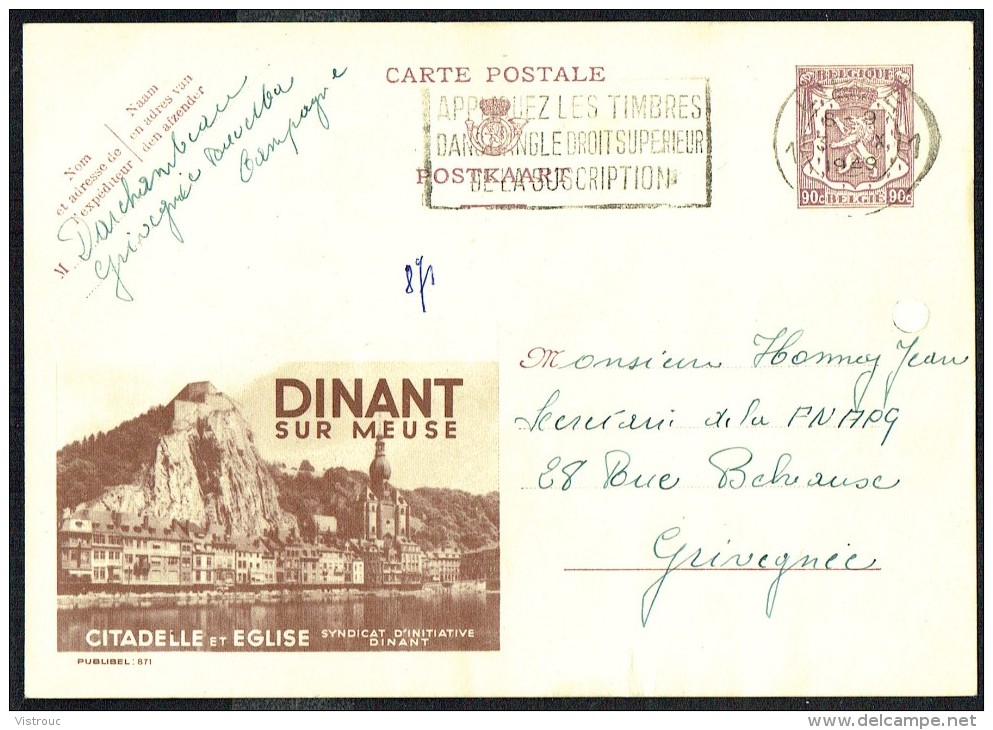 CARTE POSTALE
POSTKAART
APPLIQUEZ LES TIMBRES
DANS L'ANGLE DROIT SUPERIEUR
DE LA SUSCRIPTION
BELGIQUE
1949
90c 90c
BELGIË
Naam
en adres van
den afzender
Nom
et adresse de
l'expéditeur
M Darchambeau
Grivegnée
Campagne
8/1
Monsieur Honney Jean
de la FNAPG
28 Rue
Grivegnée
DINANT
SUR MEUSE
CITADELLE ET EGLISE
SYNDICAT D'INITIATIVE
DINANT
PUBLIBEL : 871
Vistrouc
www.delcampe.net